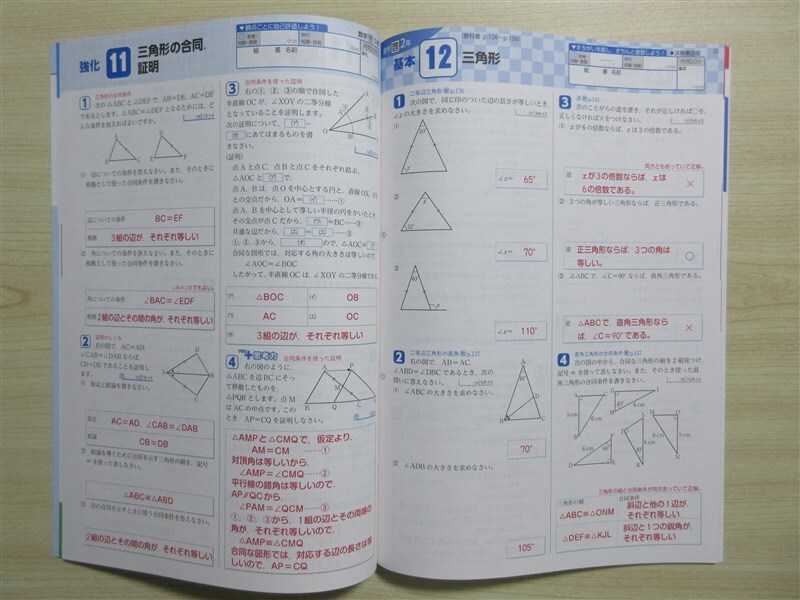 強化 11 三角形の合同，
証明
▼観点ごとに自己評価しよう！
数学 図 2年
組 番 名前
1 三角形の合同条件
次の△ABCと△DEFで，AB=DE，AC=DF
であるとします。△ABC≡△DEFとなるためには，ど
んな条件を加えればよいですか。
辺についての条件を答えなさい。また，そのときに
根拠として使った合同条件を書きなさい。
辺についての条件 BC=EF
根拠 3組の辺が，それぞれ等しい
② 角についての条件を答えなさい。また，そのときに
根拠として使った合同条件を書きなさい。
角についての条件 ∠BAC=∠EDF
根拠 2組の辺とその間の角が，それぞれ等しい
2 証明のしくみ
右の図で，AC=AD，
∠CAB=∠DABならば，
CB=DBであることを証明し
ます。
① 仮定と結論を書きなさい。
仮定 AC=AD，∠CAB=∠DAB
結論 CB=DB
② 結論を導くために合同を示す三角形の組を，記号
≡を使って表しなさい。
△ABC≡△ABD
2組の辺とその間の角が，それぞれ等しい
3 合同条件を使った証明
右の①，②，③の順で作図した
半直線OCが，∠XOYの二等分線
となっていることを証明します。
次の証明について，(ア)～
(オ)にあてはまるものを書
きなさい。
(証明)
点Aと点C，点Bと点Cをそれぞれ結ぶ。
△AOCと(ア)で，
点A，Bは，点Oを中心とする円と，直線OX，
との交点だから，OA=(イ)……①
点A，Bを中心として等しい半径の円をかいたとき
その交点が点Cだから，(ウ)=BC……②
共通な辺だから，(エ)=(エ)……③
①，②，③から，(オ)ので，△AOC≡
合同な図形では，対応する角の大きさは等しいので
∠AOC=∠BOC
したがって，半直線OCは，∠XOYの二等分線であ
(ア) △BOC (イ) OB
(ウ) AC (エ) OC
(オ) 3組の辺が，それぞれ等しい
4 +思考力 合同条件を使った証明
右の図のように，
△ABCを辺BCにそっ
て移動したものを，
△PQRとします。点M
はACの中点です。このと
き，AP=CQを証明しなさい。
△AMPと△CMQで，仮定より，
AM=CM ……①
対頂角は等しいから，
∠AMP=∠CMQ……②
平行線の錯角は等しいので，
AP∥QCから，
∠PAM=∠QCM……③
①，②，③から，1組の辺とその両端の
角が，それぞれ等しいので，
△AMP≡△CMQ
合同な図形では，対応する辺の長さは等
しいので，AP=CQ
数学 図 2年
基本 12 三角形
(教科書 p.126～p.136)
▼まちがいを直し，きちんと整理しよう！
組 番 名前
1 二等辺三角形 p.126
次の図で，同じ印のついた辺の長さが等しいとき
∠xの大きさを求めなさい。
①
50°
x
∠x= 65°
②
x
55°
∠x= 70°
③
40°
x
∠x= 110°
2 二等辺三角形の底角 p.127
右の図で，AB=AC，
∠ABD=∠DBCであるとき，次の
問いに答えなさい。
① ∠ABCの大きさを求めなさい。
70°
② ∠ADBの大きさを求めなさい。
105°
3 逆 p.131
次のことがらの逆を書き，それが正しければ○を，
正しくなければ×をつけなさい。
① xが6の倍数ならば，xは3の倍数である。
両方ともあっていて正解。
逆 xが3の倍数ならば，xは
6の倍数である。 ×
② 3つの角が等しい三角形ならば，正三角形である。
逆 正三角形ならば，3つの角は
等しい。 ○
③ △ABCで，∠C=90°ならば，直角三角形である。
逆 △ABCで，直角三角形なら
ば，∠C=90°である。 ×
4 直角三角形の合同条件
次の図の中から，合同な三角形の組を2組見つけ，
記号≡を使って表しなさい。また，そのとき使った直
角三角形の合同条件を書きなさい。
三角形の組と合同条件が両方あっていて正解。
三角形の組 合同条件
△ABC≡△ONM 斜辺と他の1辺が，
それぞれ等しい
△DEF≡△KJL 斜辺と1つの鋭角が，
それぞれ等しい